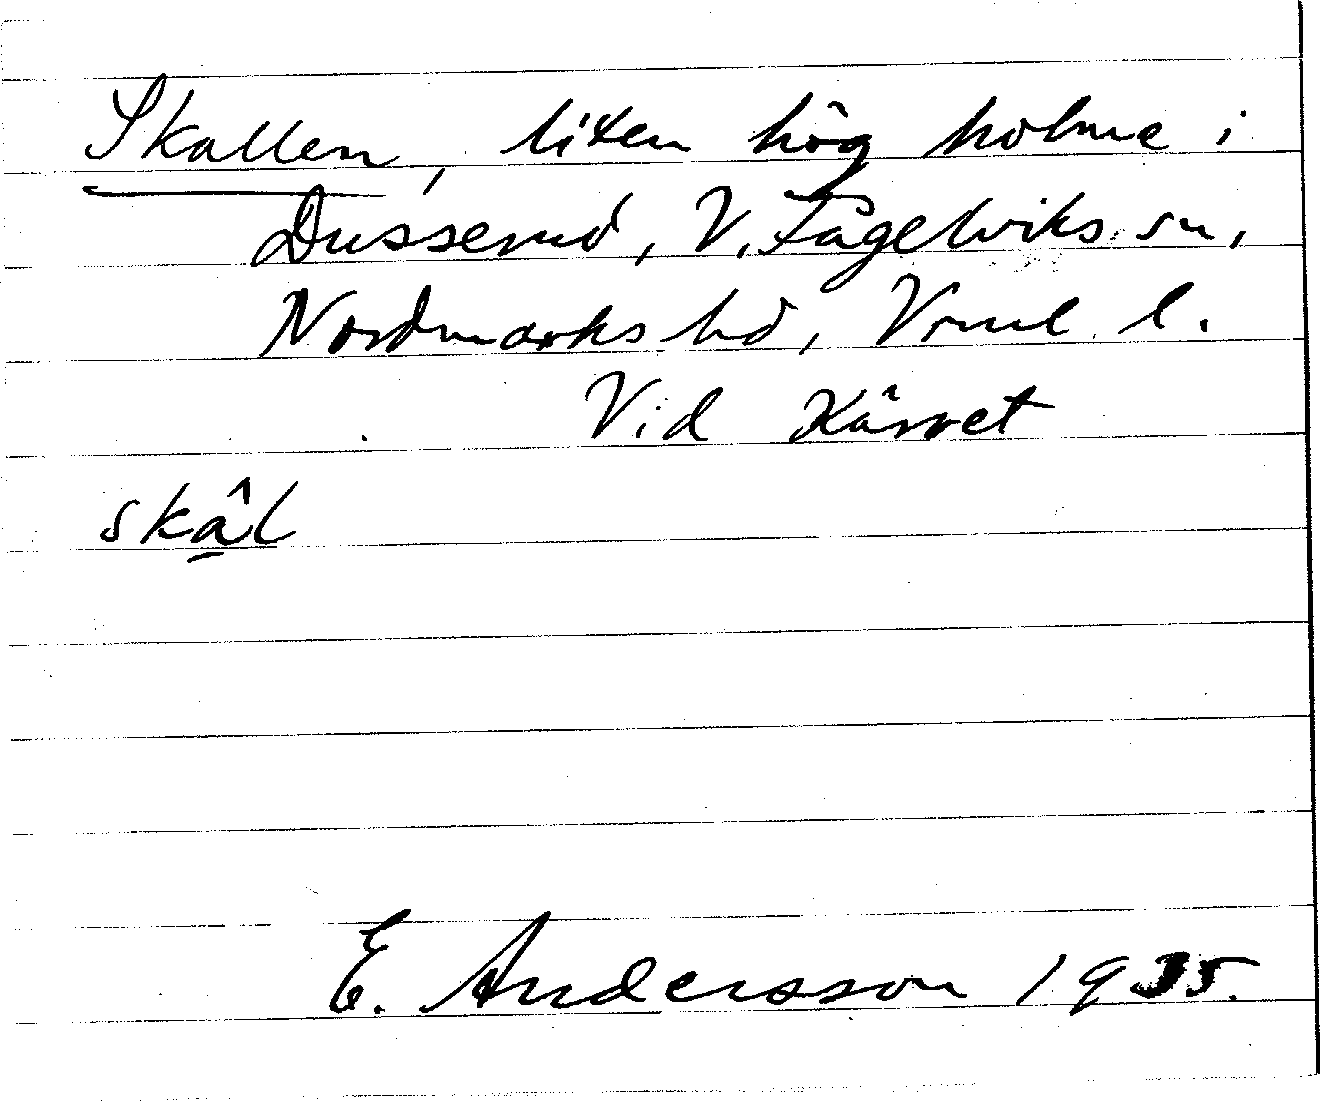 Skallen, liten hög holme i
Dusserud, V. Fågelviks sn,
Nordmarks hd, Vrml l.
Vid Kärret
skâl
E. Andersson 1935.